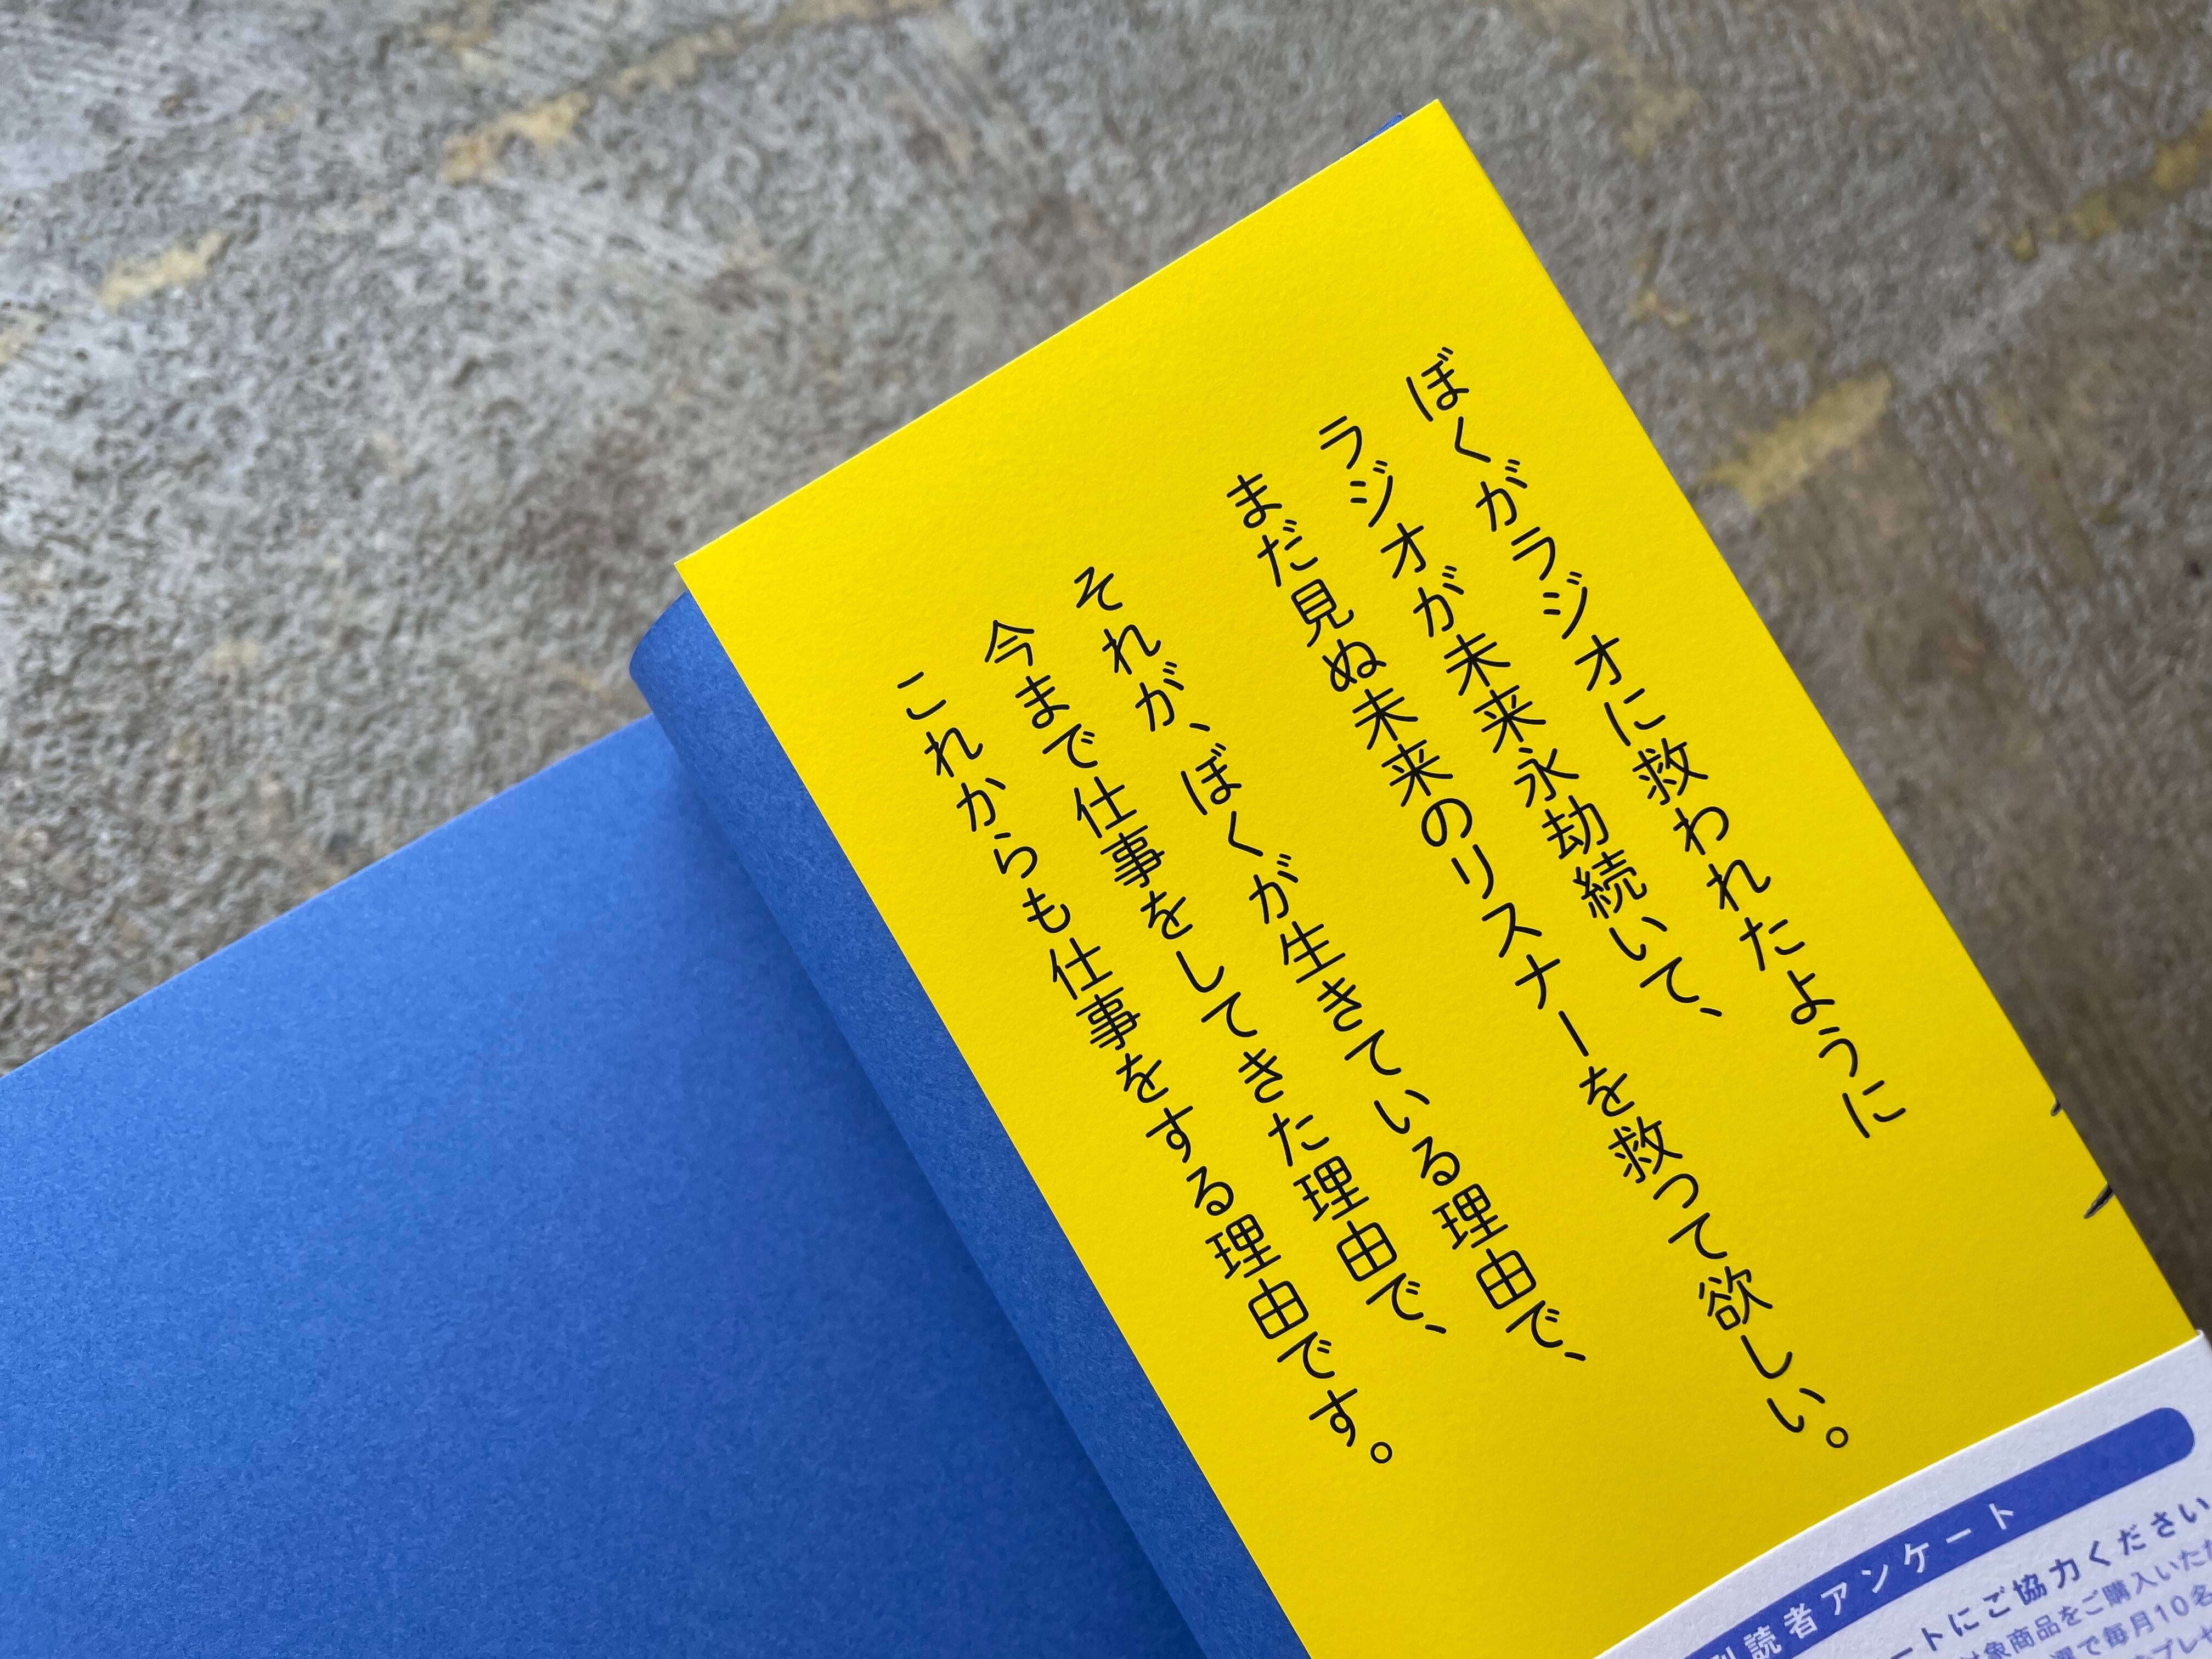 ぼくがラジオに救われたように
ラジオが未来永劫続いて、
まだ見ぬ未来のリスナーを救って欲しい。
それが、ぼくが生きている理由で、
今まで仕事をしてきた理由で、
これからも仕事をする理由です。
読者アンケート
ートにご協力ください
象商品をご購入いただ
選で毎月10名
プレゼ